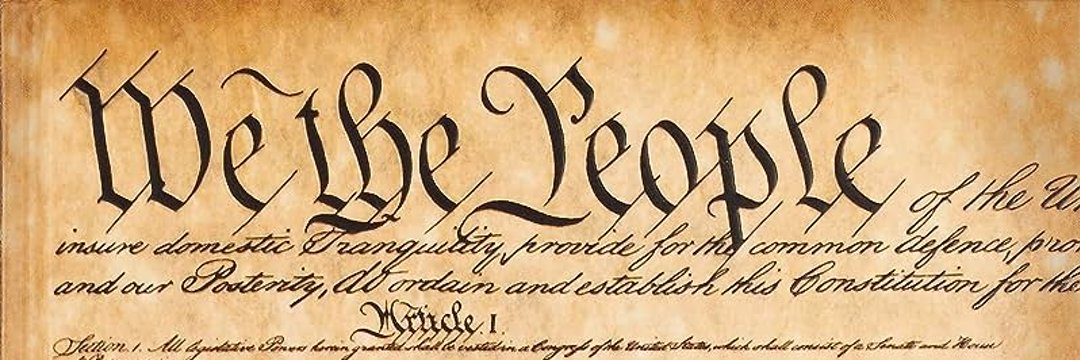 We the People of the Un
insure domestic Tranquility, provide for the common defence, pro
and our Posterity, do ordain and establish this Constitution for the
Article. I.
Section. 1. All legislative Powers herein granted shall be vested in a Congress of the United States, which shall consist of a Senate and House